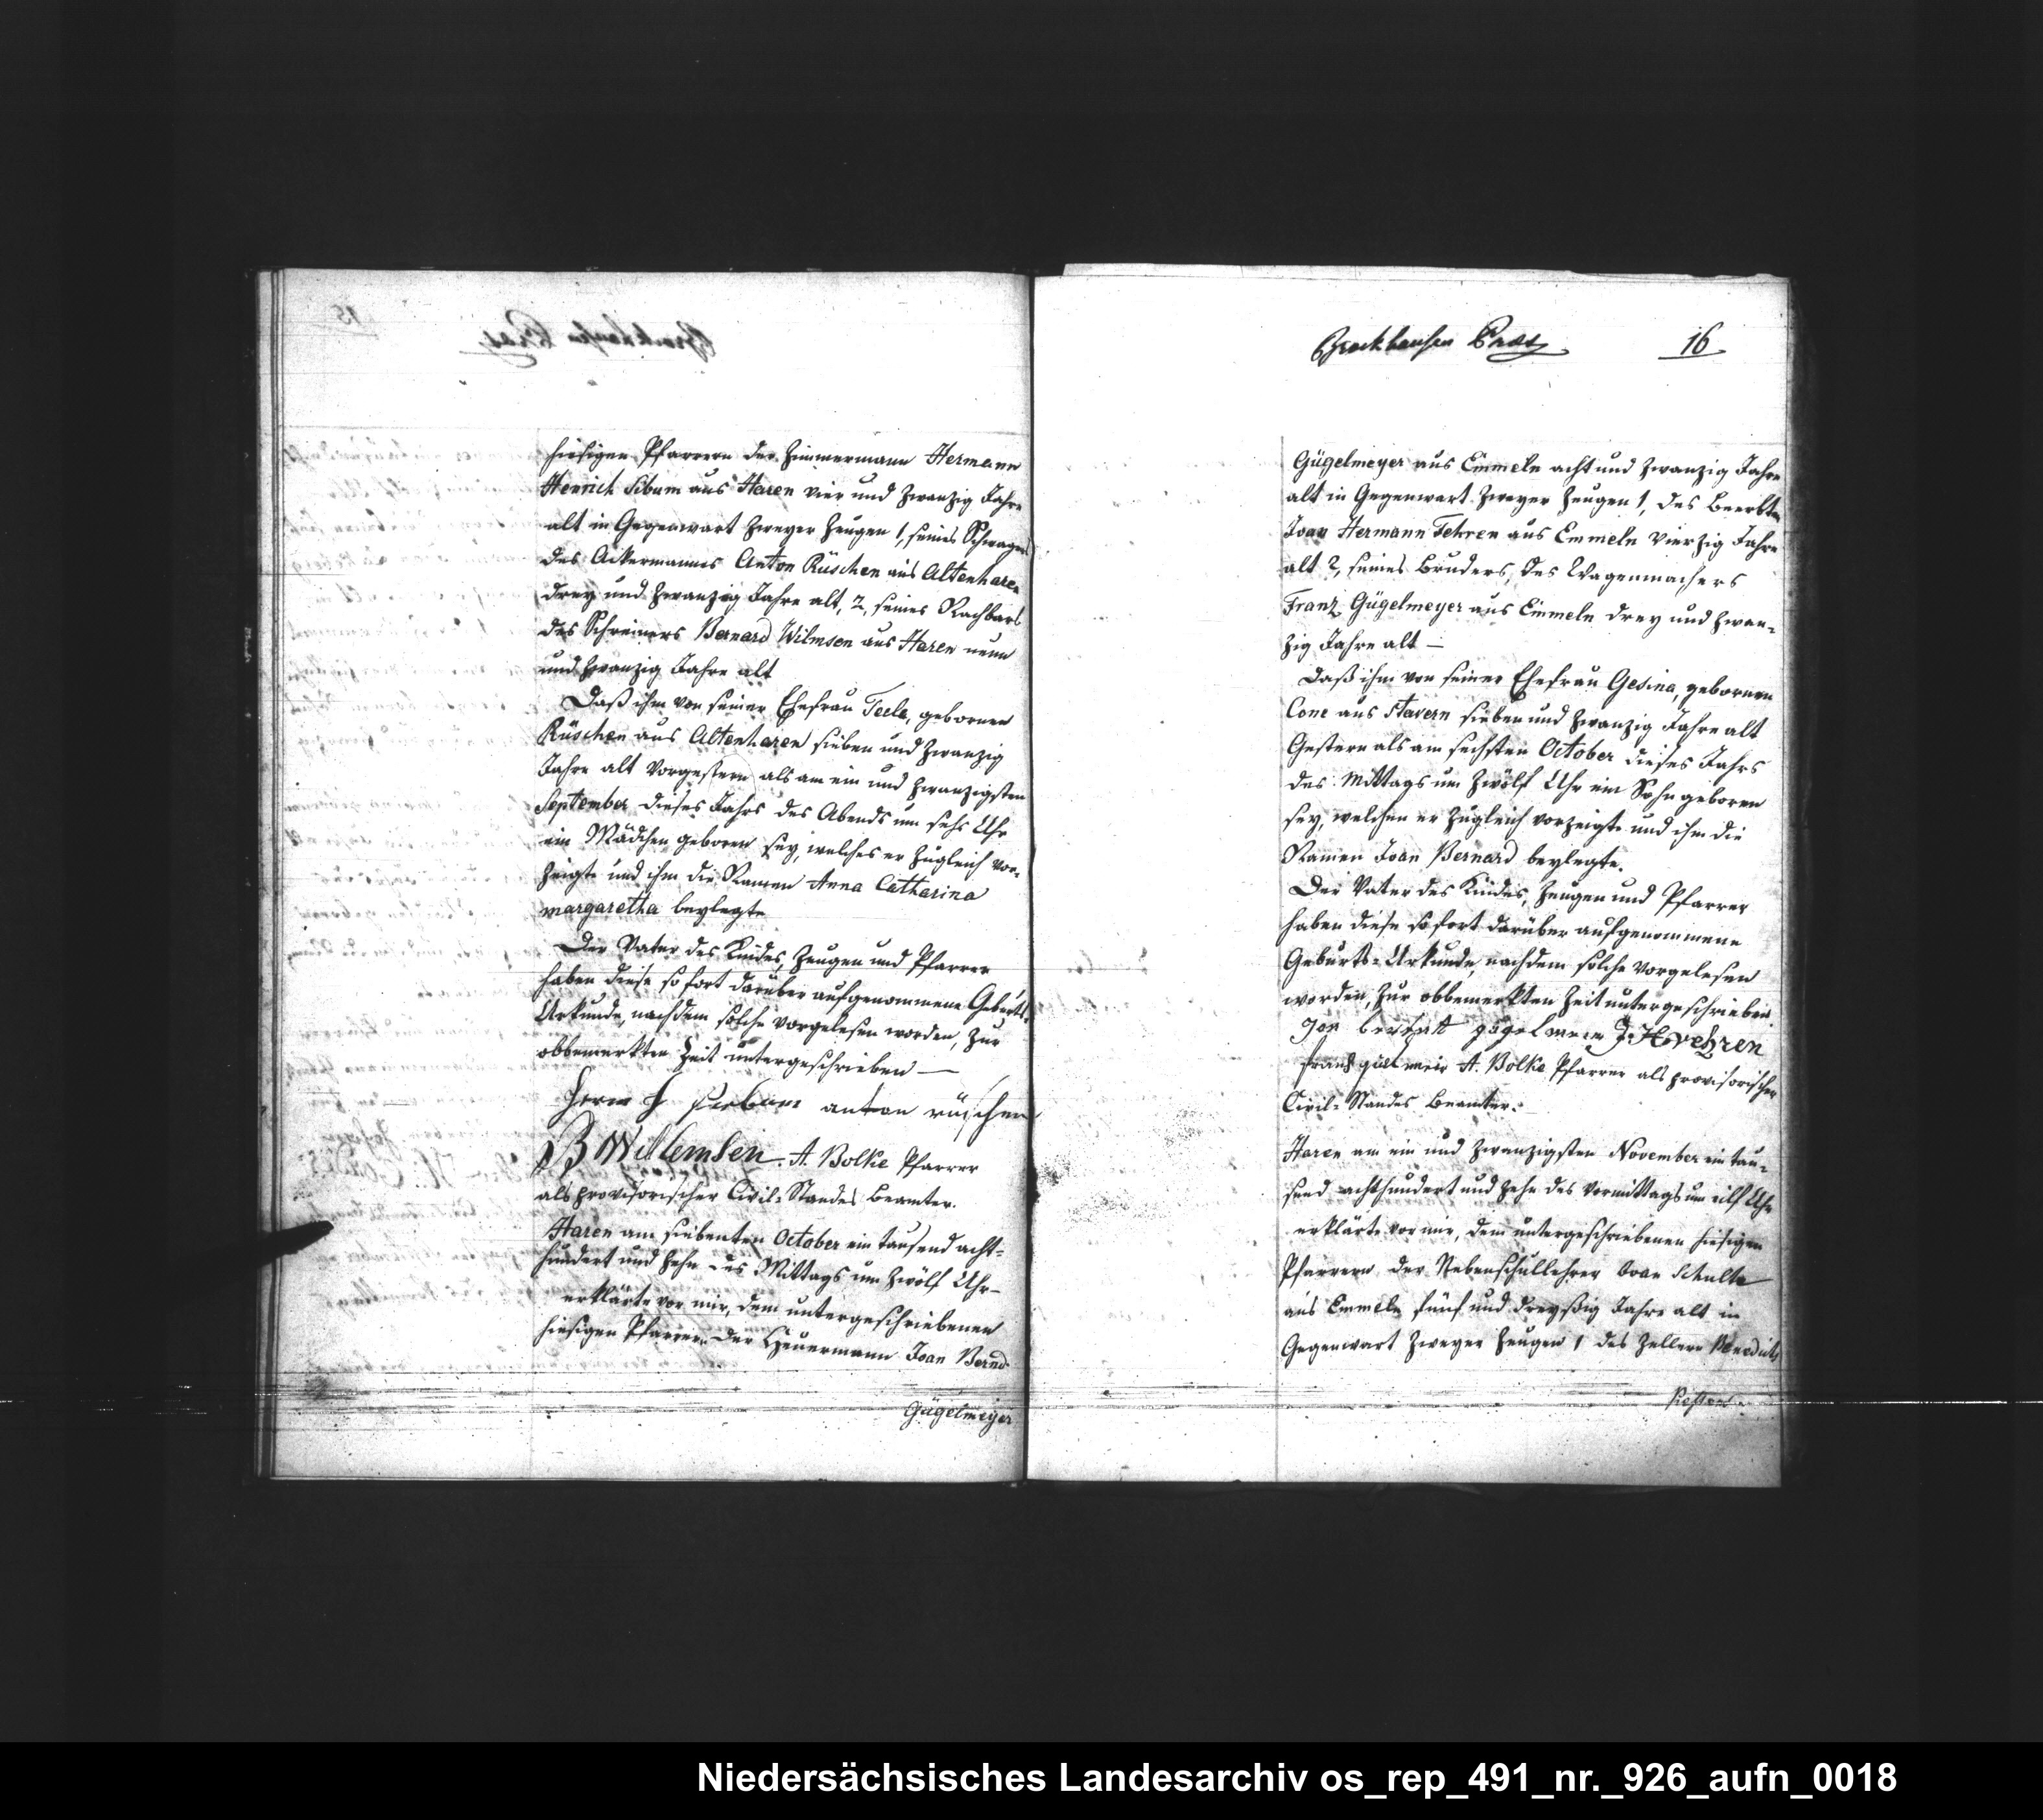 hiesigen Pfarrern der Zimmermann Hermann
Henrich Sibum aus Haren vier und zwanzig Jahre
alt in Gegenwart zweyer Zeugen 1, seines Schwagers
des Ackermannes Anton Rüschen aus Altenharen
drey und zwanzig Jahre alt, 2, seines Nachbars
des Schreiners Bernard Wilmsen aus Haren neun
und zwanzig Jahre alt
Daß ihm von seiner Ehefrau Teele, gebornen
Rüschen aus Altenharen sieben und zwanzig
Jahre alt vorgestern als am ein und zwanzigsten
September dieses Jahrs des Abends um sechs Uhr
ein Mädchen geboren sey, welches er zugleich vor-
zeigte und ihm die Namen Anna Catharina
margaretha beylegte
Der Vater des Kindes, Zeugen und Pfarrer
haben diese sofort darüber aufgenommene Geburts-
Urkunde, nachdem solche vorgelesen worden, zur
obbemerkten Zeit untergeschrieben —
Herm H anton rüschen
B Willemsen. A. Bolke Pfarrer
als provisorischer Civil-Standes Beamter.
Haren am siebenten October ein tausend acht-
hundert und zehn des Mittags um zwölf Uhr
erklärte vor mir, dem untergeschriebenen
hiesigen Pfarrern der Heuermann Joan Bernd
Gügelmeyer
Brockhausen Præs 16
Gügelmeyer aus Emmeln acht und zwanzig Jahre
alt in Gegenwart zweyer Zeugen 1, des Beerbten
Joan Hermann Fehren aus Emmeln vierzig Jahre
alt 2, seines Bruders, des Wagenmachers
Franz Gügelmeyer aus Emmeln drey und zwan-
zig Jahre alt —
Daß ihm von seiner Ehefrau Gesina, gebornen
Cone aus Stavern sieben und zwanzig Jahre alt
Gestern als am sechsten October dieses Jahrs
des Mittags um zwölf Uhr ein Sohn geboren
sey, welchen er zugleich vorzeigte und ihm die
Namen Joan Bernard beylegte.
Der Vater des Kindes, Zeugen und Pfarrer
haben diese sofort darüber aufgenommene
Geburts-Urkunde, nachdem solche vorgelesen
worden, zur obbemerkten Zeit untergeschrieben
J: H vehren
franz A. Bolke Pfarrer als provisorischer
Civil-Standes Beamter.
Haren am ein und zwanzigsten November ein tau-
send achthundert und zehn des Vormittags um eilf Uhr
erklärte vor mir, dem untergeschriebenen hiesigen
Pfarrern der Nebenschullehrer Joan Schulte
aus Emmeln fünf und dreyßig Jahre alt in
Gegenwart zweyer Zeugen 1 des Zellern
Niedersächsisches Landesarchiv os_rep_491_nr._926_aufn_0018